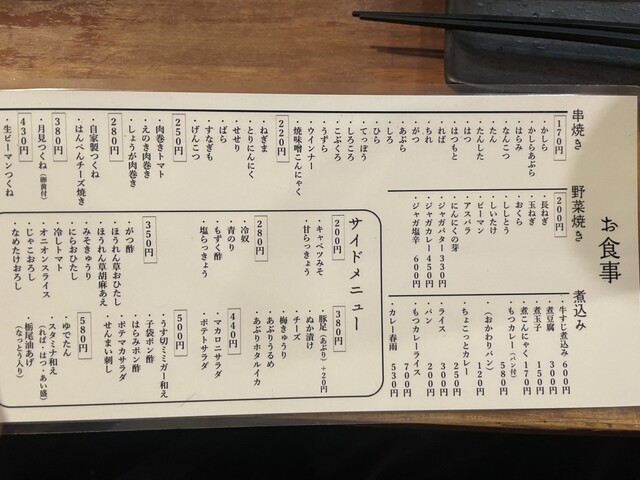 お食事
串焼き
170円
・かしら
・かしらあぶら
・はらみ
・なんこつ
・たんした
・たん
・はつ
・はつもと
・ればー
・ちれ
・がつ
・あぶら
・しろ
・ひら
・てっぽう
・しろころ
・こぶくろ
・うずら
・ウインナー
・焼味噌こんにゃく
220円
・ねぎま
・とりにんにく
・せせり
・ぱら
・すなぎも
・げんこつ
250円
・肉巻きトマト
・えのき肉巻き
・しょうが肉巻き
280円
・自家製つくね
・はんぺんチーズ焼き
380円
・月見つくね(卵黄付)
430円
・生ピーマンつくね
野菜焼き
200円
・長ねぎ
・玉ねぎ
・おくら
・ししとう
・しいたけ
・ピーマン
・アスパラ
・にんにくの芽
・ジャガバター 330円
・ジャガカレー 450円
・ジャガ塩辛 600円
煮込み
・牛すじ煮込み 600円
・煮豆腐 300円
・煮玉子 150円
・煮こんにゃく 170円
・もつカレー(パン付) 580円
(おかわりパン) 120円
・ちょこっとカレー 250円
・ライス 300円
・パン 200円
・もつカレーライス 700円
・カレー春雨 530円
サイドメニュー
200円
・キャベツみそ
・甘らっきょう
280円
・冷奴
・青のり
・もずく酢
・塩らっきょう
350円
・がつ酢
・ほうれん草おひたし
・ほうれん草胡麻あえ
・みそきゅうり
・にらおひたし
・冷しトマト
・オニオンスライス
・じゃこおろし
・なめたけおろし
380円
・豚足(あぶり)+20円
・ぬか漬け
・チーズ
・梅きゅうり
・あぶりうるめ
・あぶりホタルイカ
440円
・マカロニサラダ
・ポテトサラダ
500円
・うす切ミミガー和え
・子袋ポン酢
・はらみポン酢
・ポテマカサラダ
・せんまい刺し
580円
・ゆでたん
・スタミナ和え
(れば・はつ・あい盛)
・栃尾油あげ
(なっとう入り)